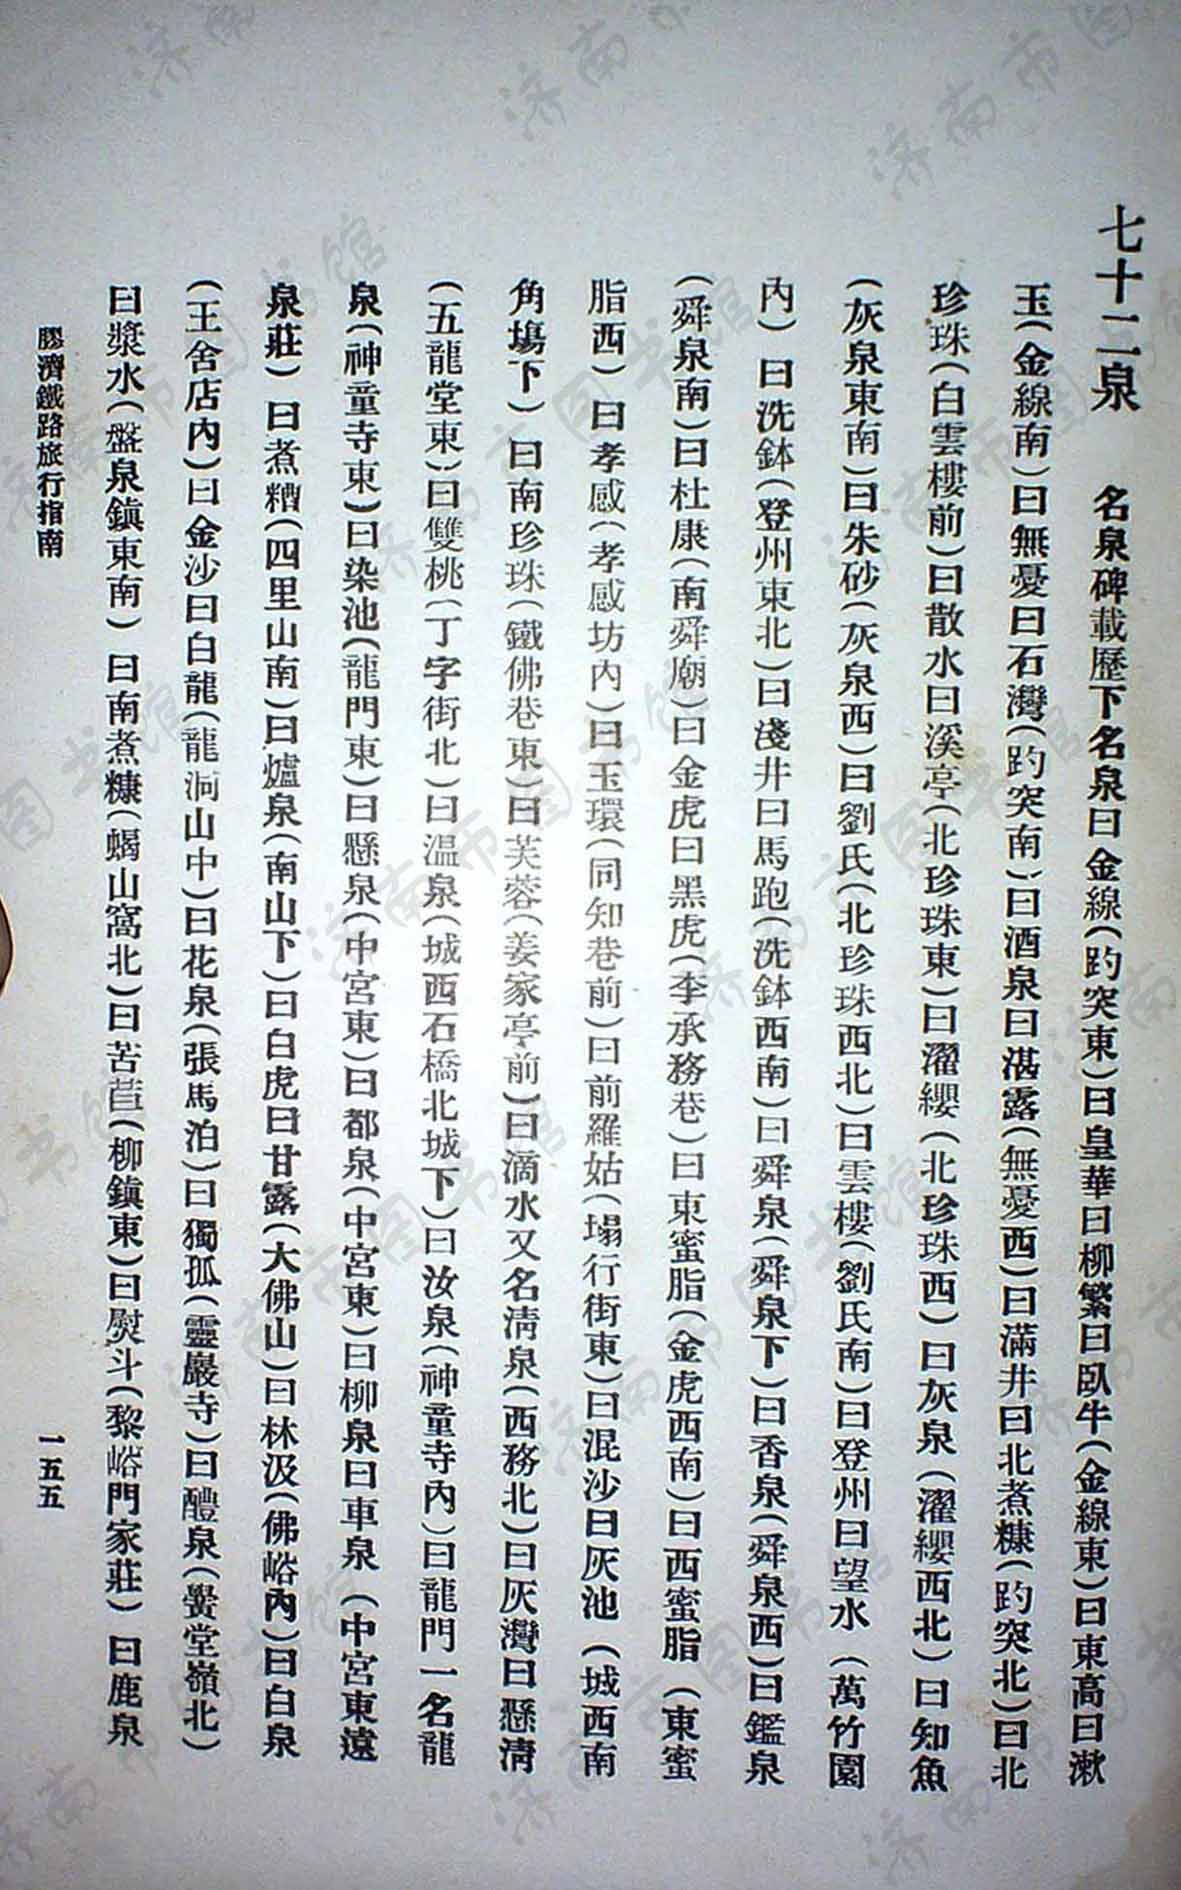 七十二泉　名泉碑載歷下名泉曰金線（趵突東）曰皇華曰柳絮曰臥牛（金線東）曰東高曰漱
玉（金線南）曰無憂曰石灣（趵突南）曰酒泉曰湛露（無憂西）曰滿井曰北煮糠（趵突北）曰北
珍珠（白雲樓前）曰散水曰溪亭（北珍珠東）曰濯纓（北珍珠西）曰灰泉（濯纓西北）曰知魚
（灰泉東南）曰朱砂（灰泉西）曰劉氏（北珍珠西北）曰雲樓（劉氏南）曰登州曰望水（萬竹園
內）曰洗鉢（登州東北）曰淺井曰馬跑（洗鉢西南）曰舜泉（舜泉下）曰香泉（舜泉西）曰鑑泉
（舜泉南）曰杜康（南舜廟）曰金虎曰黑虎（李承務巷）曰東蜜脂（金虎西南）曰西蜜脂（東蜜
脂西）曰孝感（孝感坊內）曰玉環（同知巷前）曰前羅姑（塌行街東）曰混沙曰灰池（城西南
角塲下）曰南珍珠（鐵佛巷東）曰芙蓉（姜家亭前）曰滴水又名淸泉（西務北）曰灰灣曰懸淸
（五龍堂東）曰雙桃（丁字街北）曰温泉（城西石橋北城下）曰汝泉（神童寺內）曰龍門一名龍
泉（神童寺東）曰染池（龍門東）曰懸泉（中宮東）曰都泉（中宮東）曰柳泉曰車泉（中宮東遠
泉莊）曰煮糟（四里山南）曰爐泉（南山下）曰白虎曰甘露（大佛山）曰林汲（佛峪內）曰白泉
（王舍店內）曰金沙曰白龍（龍洞山中）曰花泉（張馬泊）曰獨孤（靈巖寺）曰醴泉（黌堂嶺北）
曰漿水（盤泉鎭東南）曰南煮糠（蝎山窩北）曰苦苣（柳鎭東）曰熨斗（黎峪門家莊）曰鹿泉
膠濟鐵路旅行指南
一五五
济南市图书馆